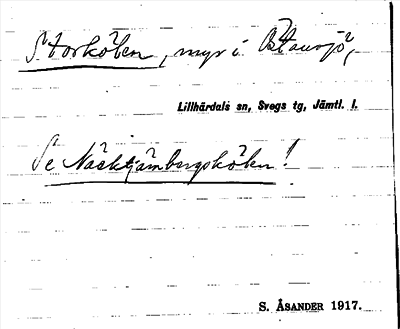 Storkölen, myr i Östansjö,
Lillhärdals sn, Svegs tg, Jämtl. l.
Se Näcktjämbergskölen!
S. ÅSANDER 1917.